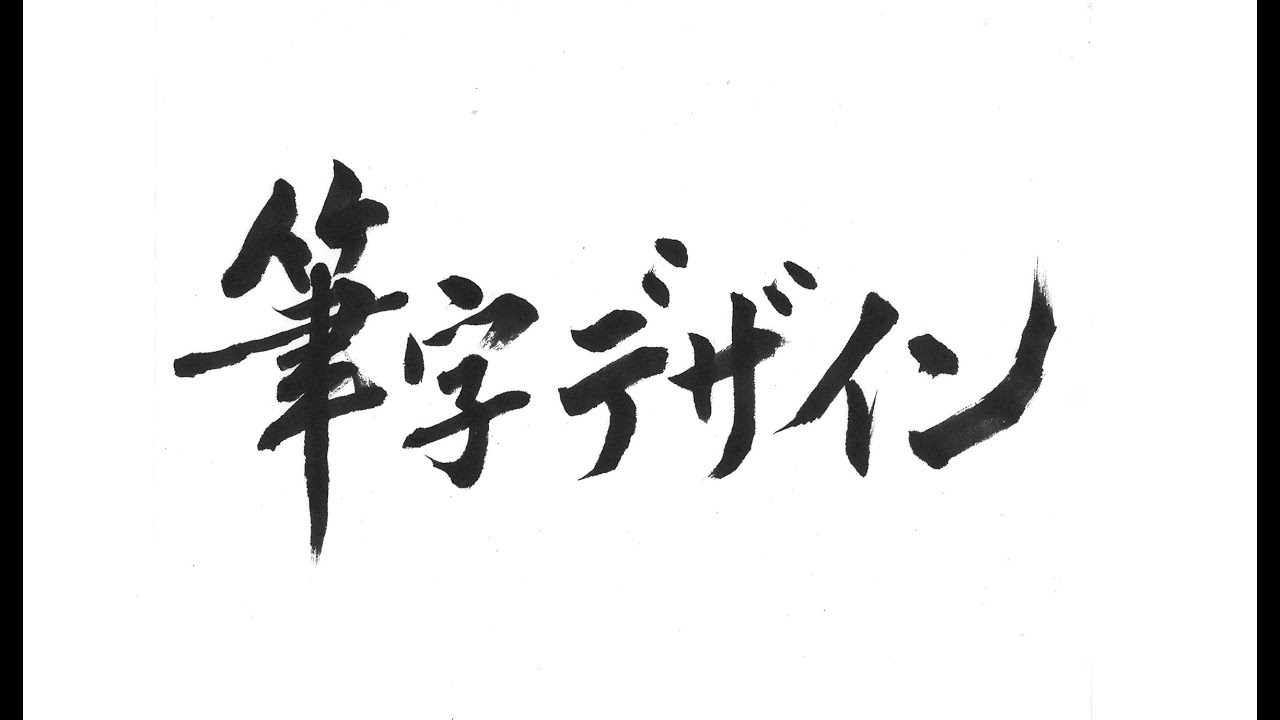 筆字デザイン